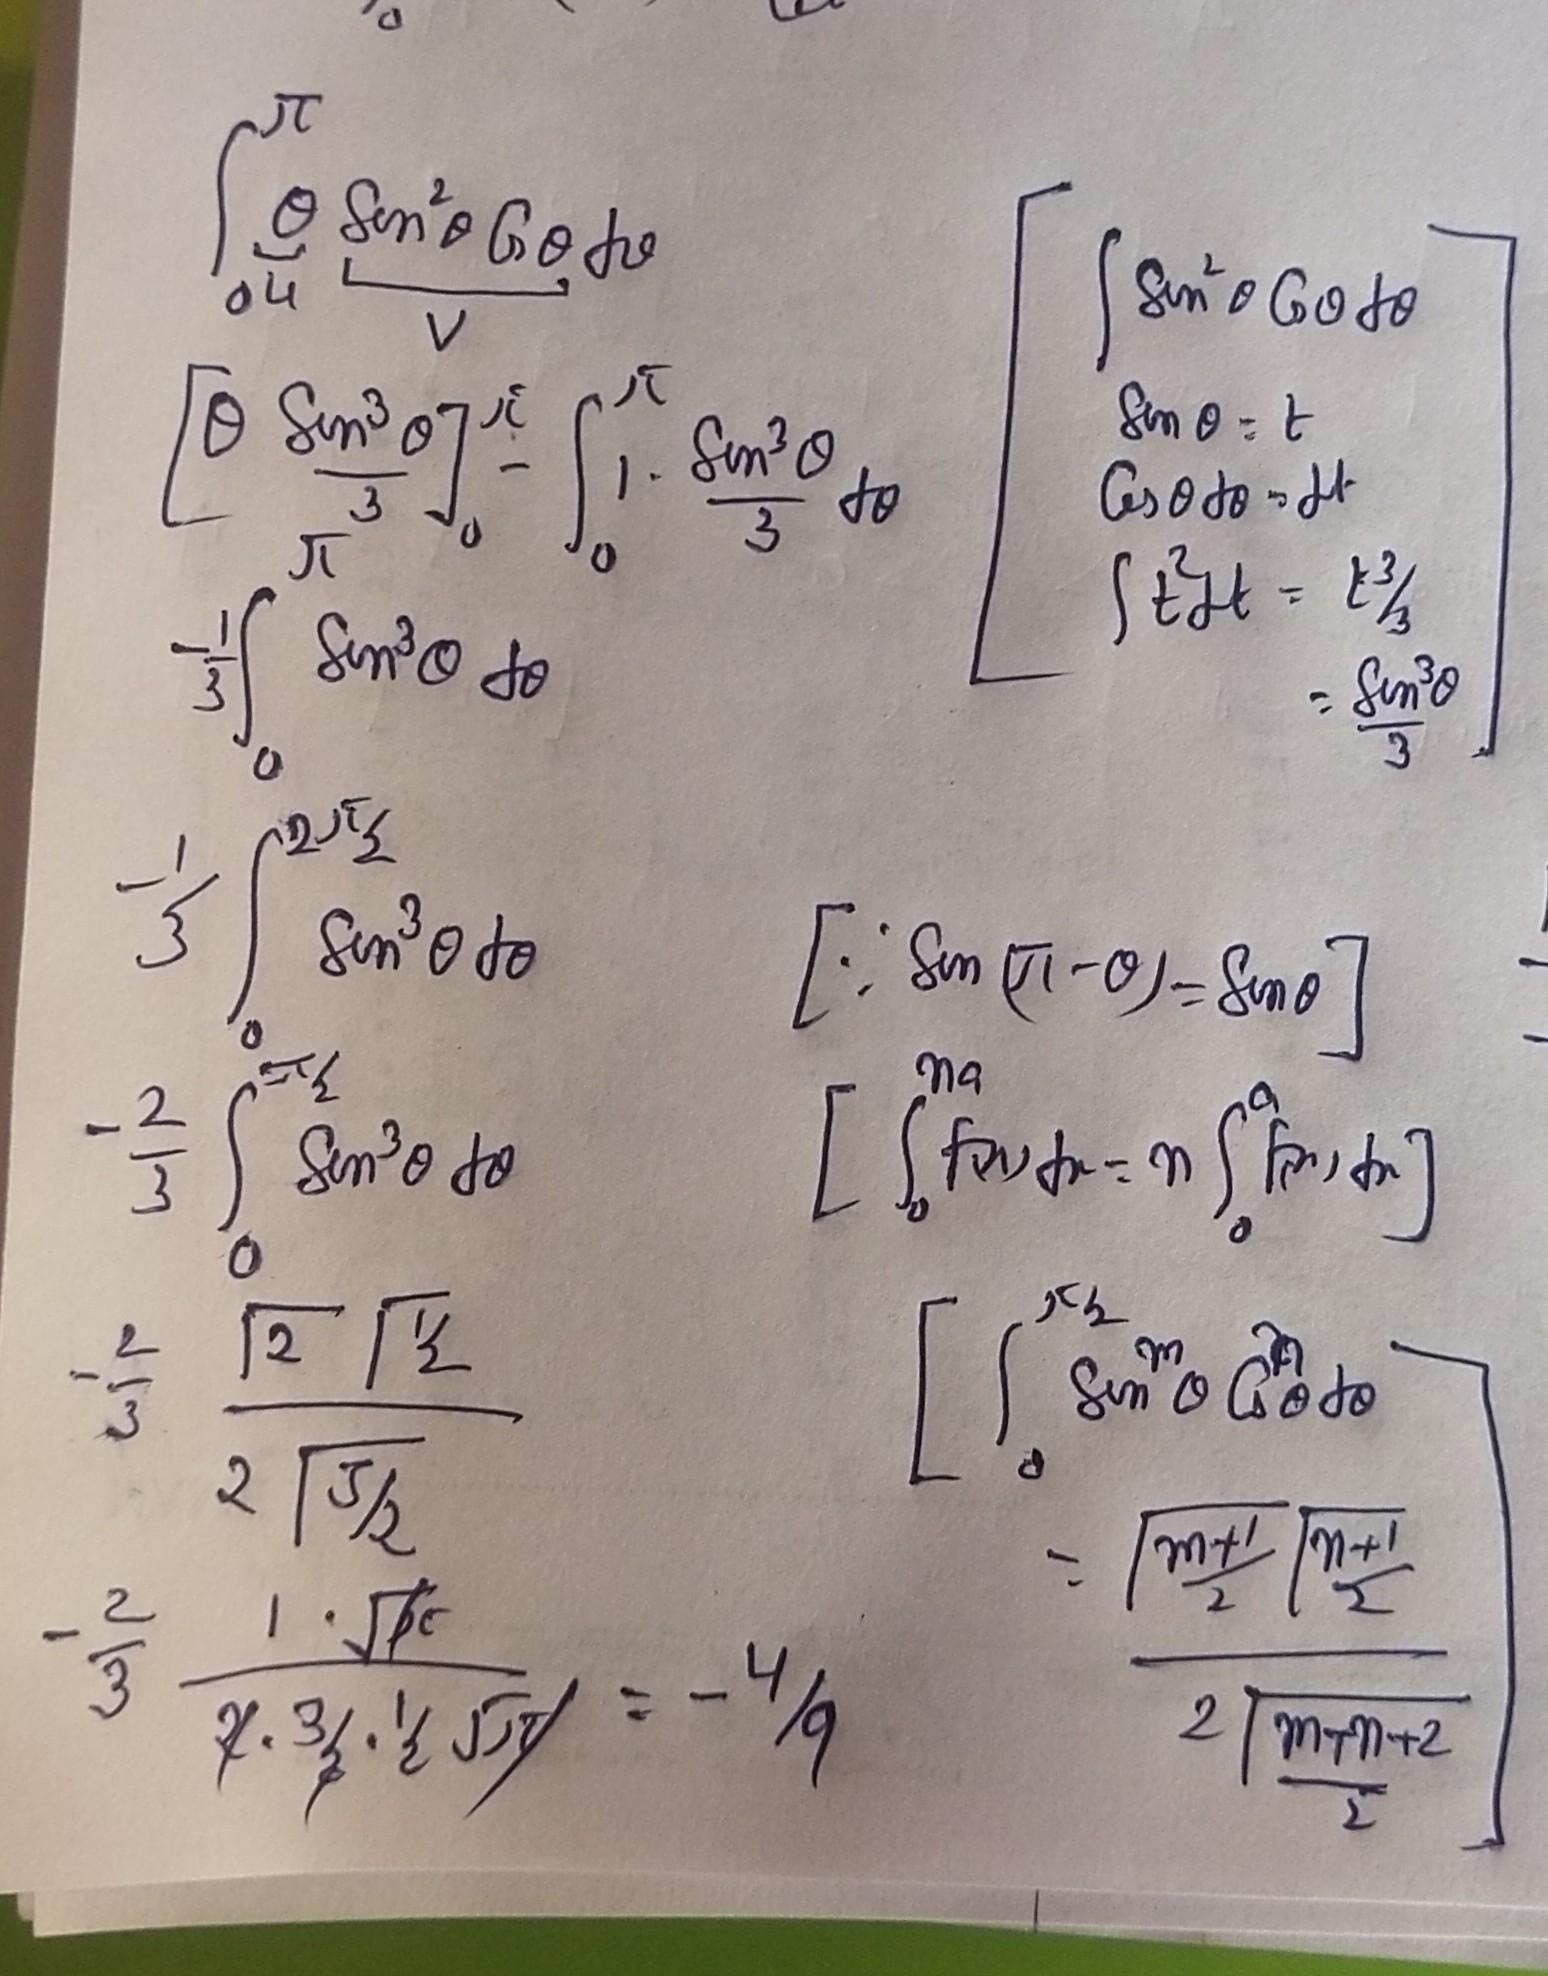 ∫₀^π θ Sin²θ Cosθ dθ
u
v
[θ Sin³θ/3]₀^π - ∫₀^π 1 · Sin³θ/3 dθ
-1/3 ∫₀^π Sin³θ dθ
-1/3 ∫₀^(2π/2) Sin³θ dθ
-2/3 ∫₀^(π/2) Sin³θ dθ
-2/3 Γ2 Γ1/2 / 2 Γ5/2
-2/3 1 · √π / 2 · 3/2 · 1/2 √π = -4/9
[∫ Sin²θ Cosθ dθ
Sinθ = t
Cosθ dθ = dt
∫ t² dt = t³/3
= Sin³θ/3]
[∵ Sin(π-θ) = Sinθ]
[∫₀^(na) f(x) dx = n ∫₀^a f(x) dx]
[∫₀^(π/2) Sin^m θ Cos^n θ dθ
= Γ(m+1)/2 Γ(n+1)/2 / 2 Γ(m+n+2)/2]